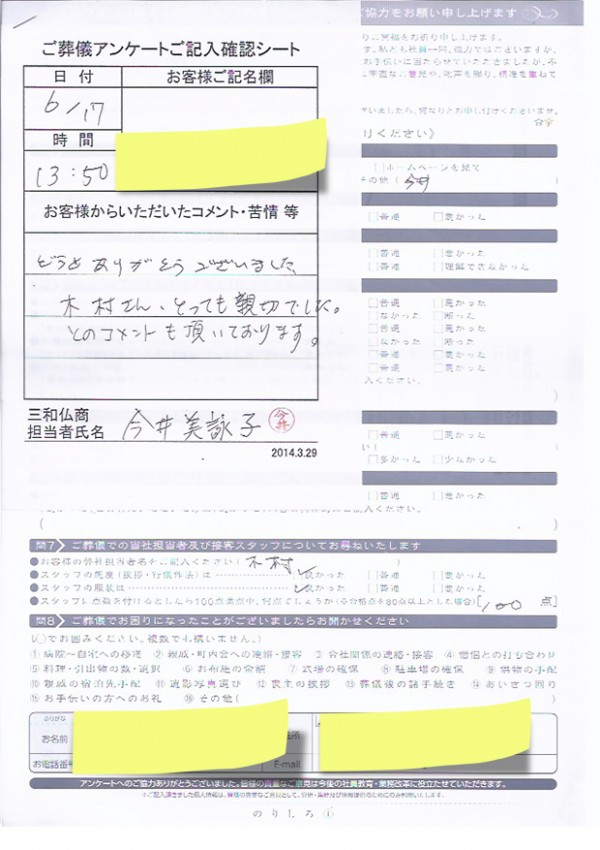 ご協力をお願い申し上げます
ご葬儀アンケートご記入確認シート
日付
お客様ご記名欄
6/17
時間
13:50
お客様からいただいたコメント・苦情 等
どうもありがとうございました
木村さん、とっても親切でした。
とのコメントも頂いております。
三和仏商
担当者氏名
今井美詠子
今井
2014.3.29
ください》
□ホームページを見て
その他( 今井
□普通 □悪かった
□普通 □悪かった
□普通 □理解できなかった
□普通 □悪かった
□なかった □断った
□普通 □悪かった
□なかった □断った
□普通 □悪かった
□普通 □悪かった
入ください。)
□普通 □悪かった
□多かった □少なかった
□普通 □悪かった
問7 ご葬儀での当社担当者及び接客スタッフについてお尋ねいたします
●お客様の弊社担当者名をご記入ください( 木村 )
●スタッフの態度(挨拶・行儀作法)は □良かった □普通 □悪かった
●スタッフの服装は □良かった □普通 □悪かった
●スタッフに点数を付けるとしたら100点満点中、何点でしょうか(※合格点を80点以上とした場合)[100 点]
問8 ご葬儀でお困りになったことがございましたらお聞かせください
(○でお囲みください。複数でも構いません。)
①病院〜自宅への移送 ②親戚・町内会への連絡・接客 ③会社関係の連絡・接客 ④僧侶との打ち合わせ
⑤料理・引出物の数・選択 ⑥お布施の金額 ⑦式場の確保 ⑧駐車場の確保 ⑨供物の手配
⑩親戚の宿泊先手配 ⑪遺影写真選び ⑫喪主の挨拶 ⑬葬儀後の諸手続き ⑭あいさつ回り
⑮お手伝いの方へのお礼 ⑯その他(
ふりがな
お名前
お電話番号
E-mail
アンケートへのご協力ありがとうございました。皆様の貴重なご意見は今後の社員教育・業務改革に役立たせていただきます。
のりしろ ①